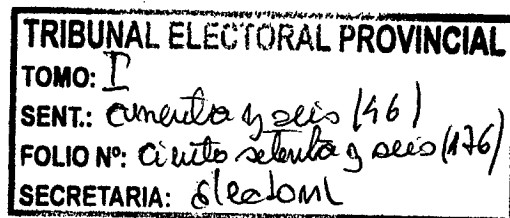 TRIBUNAL ELECTORAL PROVINCIAL
TOMO: I
SENT.: y seis (46)
FOLIO Nº: Ciento setenta y seis (176)
SECRETARIA: Electoral